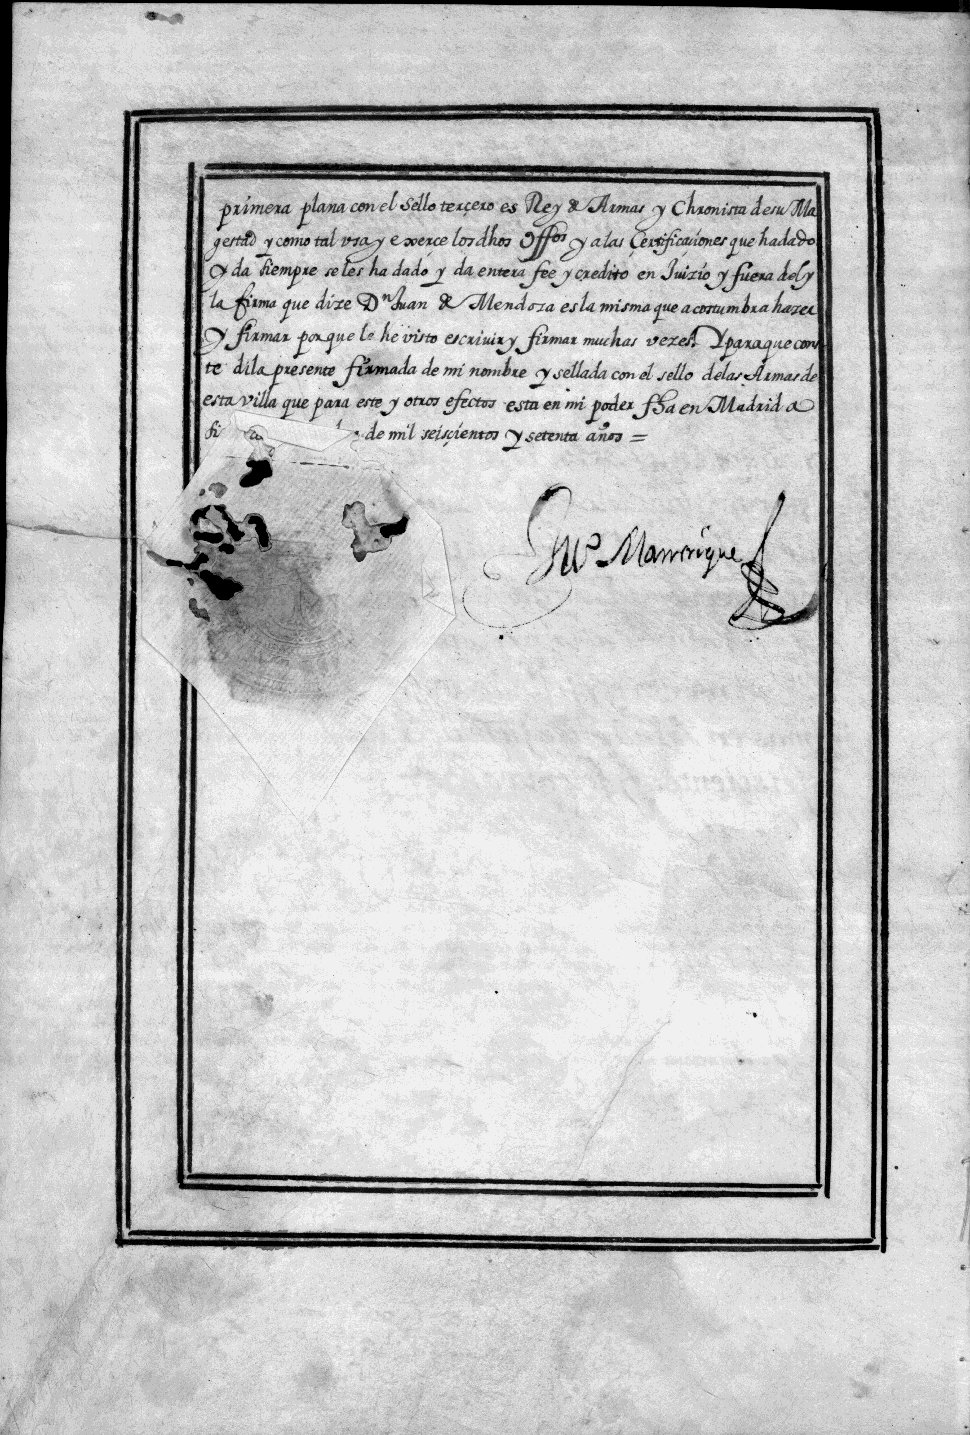 primera plana con el Sello terçero es Rey & Armas y Chronista de su Ma
gestad y como tal vsa y exerçe los dhos Offos y a las Çertificaçiones que ha dado
y da siempre se les ha dado y da entera fee y credito en Juizio y fuera del y
la firma que dize Dn Juan & Mendoza es la misma que acostumbra hazer
y firmar porque le he visto escriuir y firmar muchas vezes. Y para que cons
te di la presente firmada de mi nombre y sellada con el sello de las Armas de
esta villa que para este y otros efectos esta en mi poder fha en Madrid a
de mil seisçientos y setenta años =
Manrrique